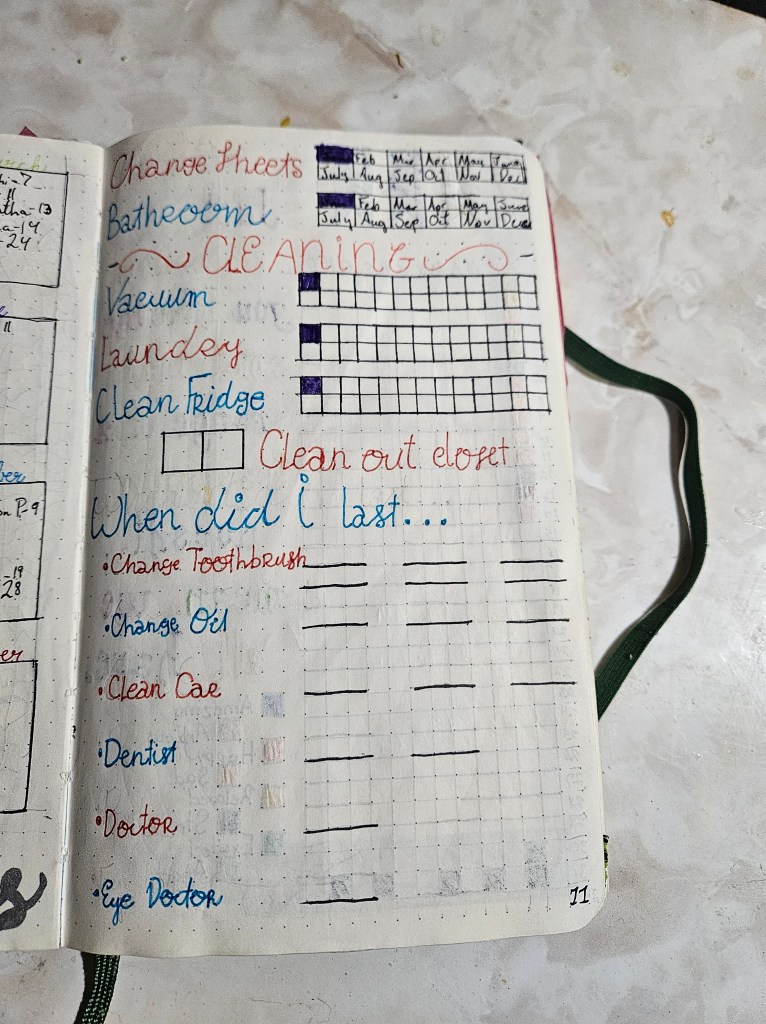 Change Sheets
Jan Feb Mar Apr May June
July Aug Sep Oct Nov Dec
Bathroom
Jan Feb Mar Apr May June
July Aug Sep Oct Nov Dec
CLEANING
Vacuum
Laundry
Clean Fridge
Clean out closet
When did i last...
•Change Toothbrush
•Change Oil
•Clean Car
•Dentist
•Doctor
•Eye Doctor
11